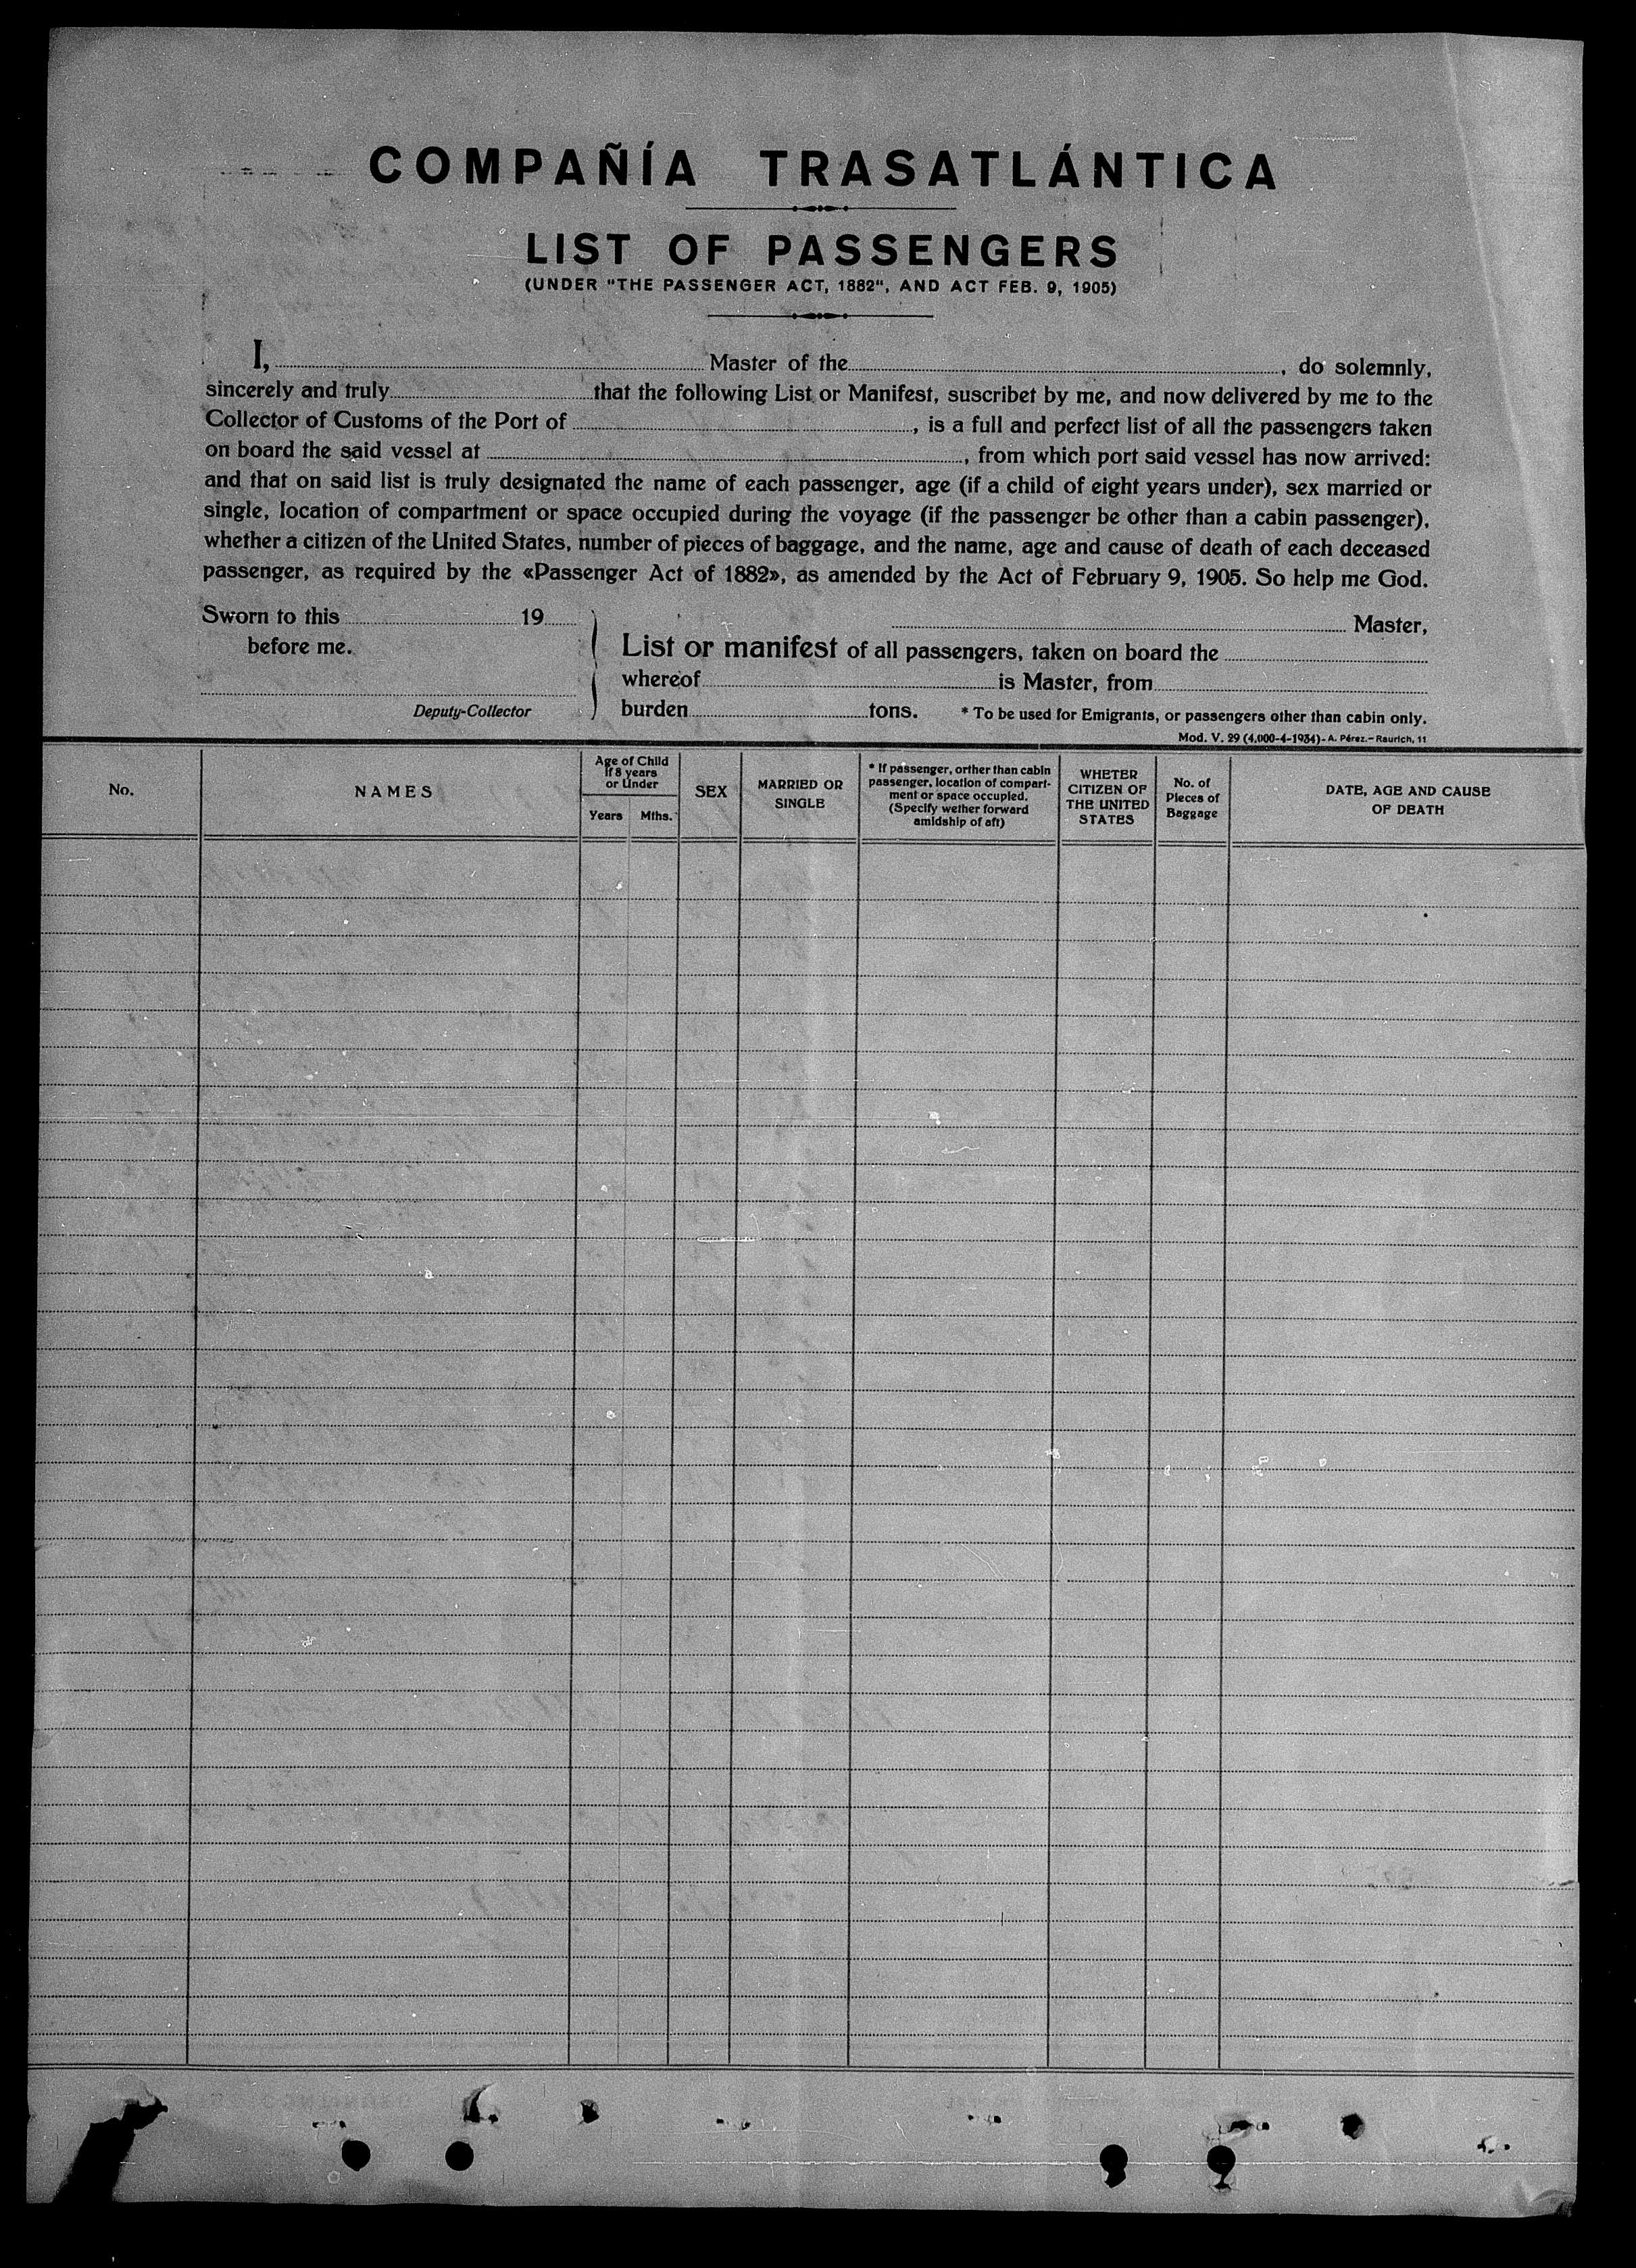 COMPAÑÍA TRASATLÁNTICA
LIST OF PASSENGERS
(UNDER "THE PASSENGER ACT, 1882", AND ACT FEB. 9, 1905)
I, Master of the , do solemnly,
sincerely and truly that the following List or Manifest, suscribet by me, and now delivered by me to the
Collector of Customs of the Port of , is a full and perfect list of all the passengers taken
on board the said vessel at , from which port said vessel has now arrived:
and that on said list is truly designated the name of each passenger, age (if a child of eight years under), sex married or
single, location of compartment or space occupied during the voyage (if the passenger be other than a cabin passenger),
whether a citizen of the United States, number of pieces of baggage, and the name, age and cause of death of each deceased
passenger, as required by the «Passenger Act of 1882», as amended by the Act of February 9, 1905. So help me God.
Sworn to this 19
before me.
Deputy-Collector
Master,
List or manifest of all passengers, taken on board the
whereof is Master, from
burden tons. * To be used for Emigrants, or passengers other than cabin only.
Mod. V. 29 (4.000-4-1934)- A. Pérez.- Raurich, 11
No.
NAMES
Age of Child
if 8 years
or Under
Years Mths.
SEX
MARRIED OR
SINGLE
* If passenger, orther than cabin
passenger, location of compart-
ment or space occupied.
(Specify wether forward
amidship of aft)
WHETER
CITIZEN OF
THE UNITED
STATES
No. of
Pieces of
Baggage
DATE, AGE AND CAUSE
OF DEATH